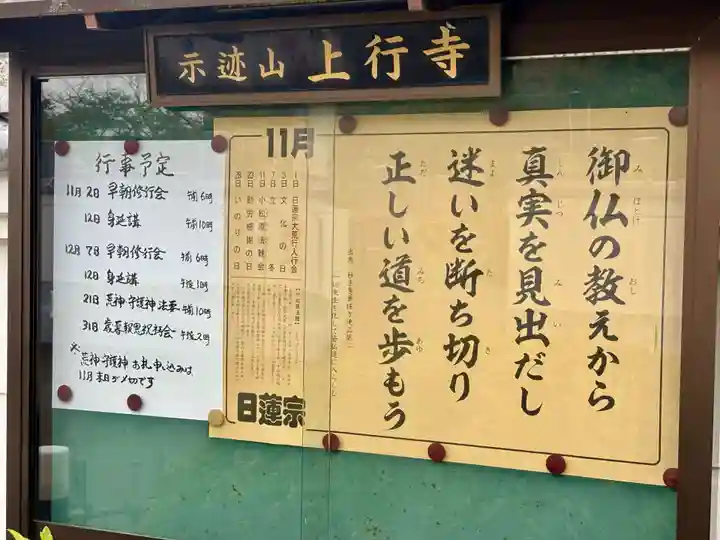 示迹山 上行寺
御仏の教えから
真実を見出だし
迷いを断ち切り
正しい道を歩もう
11月
1日 日蓮宗大荒行入行会
3日 文化の日
7日 立冬
11日 小松原法難会
23日 勤労感謝の日
28日 いのりの日
日蓮宗
行事予定
11月2日 早朝修行会 午前6時
12日 身延講 午前10時
12月7日 早朝修行会 午前6時
12日 身延講 午後1時
21日 荒神守護神法要 午前10時
31日 歳暮報恩祝祷会 午後2時
※荒神守護神お札申し込みは
11月末日〆切です